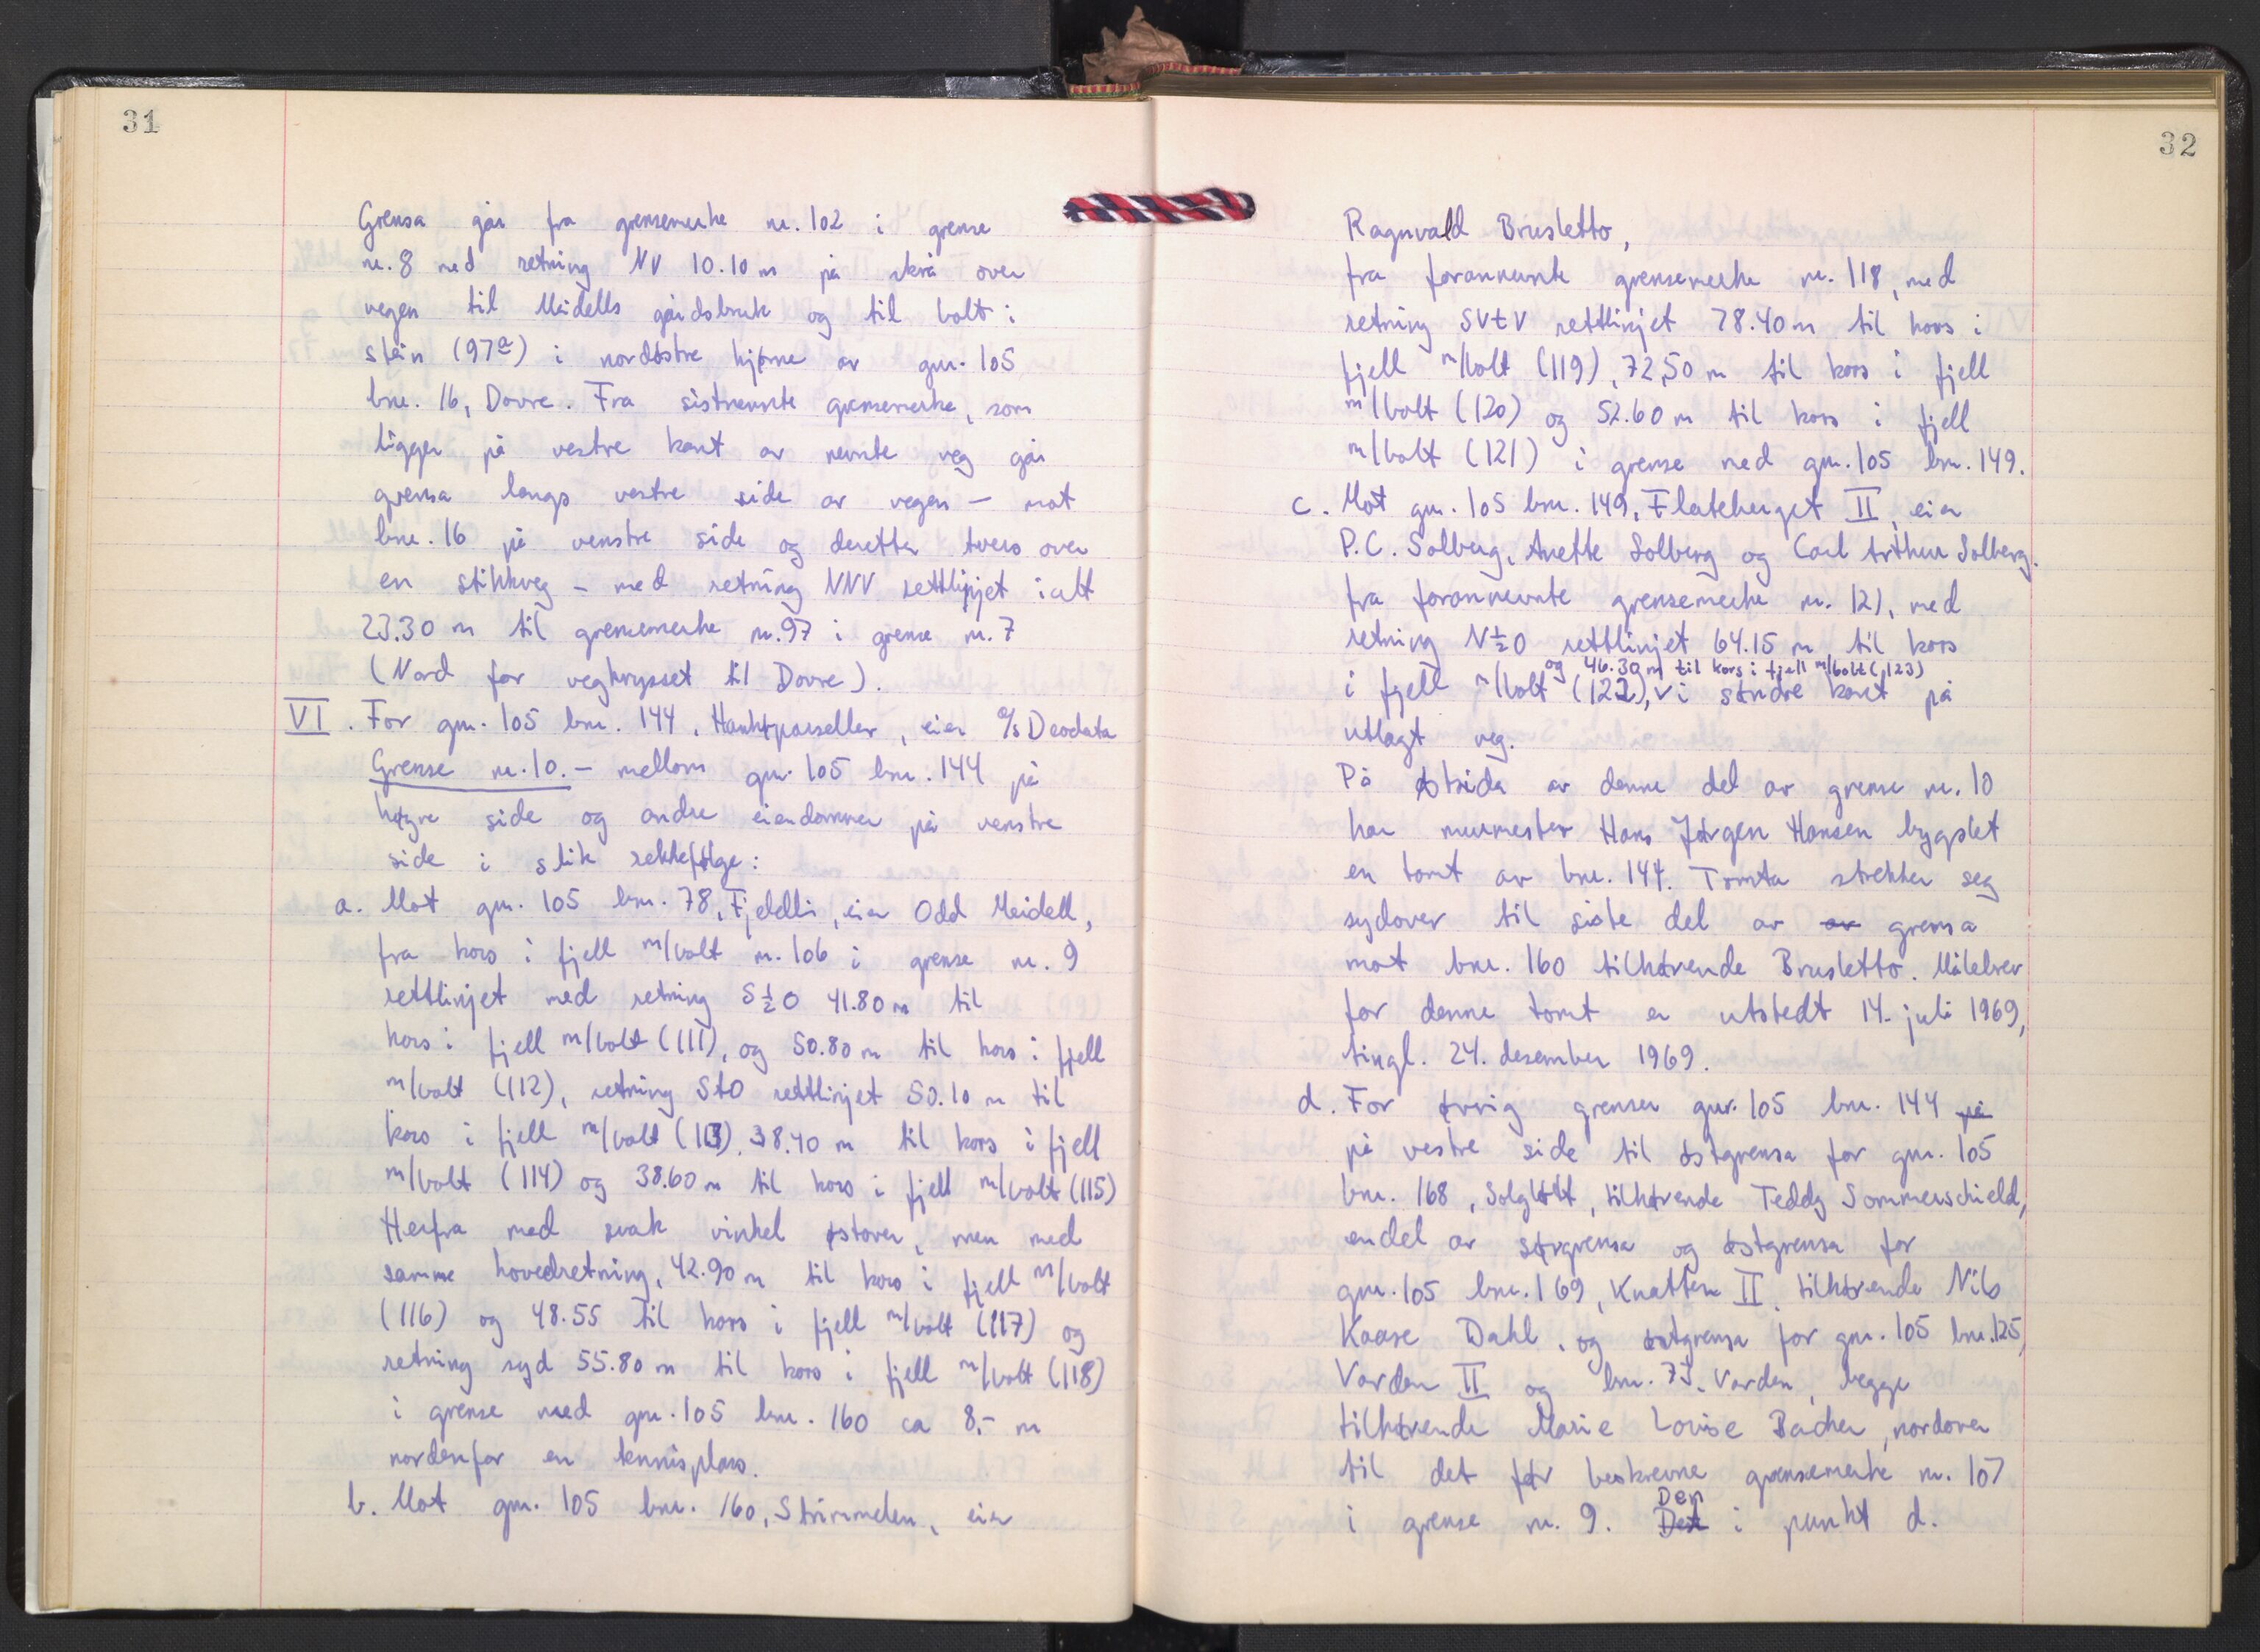 31
Grensa går fra grensemerke nr. 102 i grense
nr. 8 med retning NV 10.10 m på skrå over
vegen til Meidells gårdsbruk og til bolt i
stein (97a) i nordøstre hjørne av gnr. 105
bnr. 16, Dovre. Fra sistnevnte grensemerke, som
ligger på vestre kant av nevnte veg går
grensa langs vestre side av vegen – mot
bnr. 16 på venstre side og deretter tvers over
en stikkveg – med retning NNV rettlinjet ialt
23.30 m til grensemerke nr. 97 i grense nr. 7
(Nord for vegkrysset til Dovre).
VI. For gnr. 105 bnr. 144, Haukøparseller, eier a/s Deodata
Grense nr. 10. – mellom gnr. 105 bnr. 144 på
høgre side og andre eiendommer på venstre
side i slik rekkefølge:
a. Mot gnr. 105 bnr. 78, Fjeldli, eier Odd Meidell,
fra kors i fjell m/bolt nr. 106 i grense nr. 9
rettlinjet med retning S½O 41.80 m til
kors i fjell m/bolt (111), og 50.80 m til kors i fjell
m/bolt (112), retning StO rettlinjet 50.10 m til
kors i fjell m/bolt (113). 38.40 m til kors i fjell
m/bolt (114) og 38.60 m til kors i fjell m/bolt (115)
Herfra med svak vinkel østover, men med
samme hovedretning, 42.90 m til kors i fjell m/bolt
(116) og 48.55 til kors i fjell m/bolt (117) og
retning syd 55.80 m til kors i fjell m/bolt (118)
i grense med gnr. 105 bnr. 160 ca 8,- m
nordenfor en tennisplass.
b. Mot gnr. 105 bnr. 160, Strimmelen, eier
32
Ragnvald Brusletto,
fra forannevnte grensemerke nr. 118, med
retning SVtV rettlinjet 78.40 m til kors i
fjell m/bolt (119), 72,50 m til kors i fjell
m/bolt (120) og 52.60 m til kors i fjell
m/bolt (121) i grense med gnr. 105 bnr. 149.
c. Mot gnr. 105 bnr. 149, Flateberget II, eier
P.C. Solberg, Anette Solberg og Carl Arthur Solberg.
fra forannevnte grensemerke nr. 121, med
retning N½O rettlinjet 64.15 m til kors
og 46.30 m til kors i fjell m/bolt (123)
i fjell m/bolt (122), v i søndre kant på
utlagt veg.
På østsida av denne del av grense nr. 10
har murmester Hans Jørgen Hansen bygslet
en tomt av bnr. 144. Tomta strekker seg
sydover til siste del av av grensa
mot bnr. 160 tilhørende Brusletto. Målebrev
for denne tomt er utstedt 14. juli 1969,
tingl. 24. desember 1969.
d. For øvrig grenser gnr. 105 bnr. 144 på
på vestre side til østgrensa for gnr. 105
bnr. 168, Solgløtt, tilhørende Teddy Sommerschield,
endel av sørgrensa og østgrensa for
gnr. 105 bnr. 169, Knatten II, tilhørende Nils
Kaare Dahl, og østgrensa for gnr. 105 bnr. 125,
Varden II og bnr. 73, Varden, begge
tilhørende Marie Louise Bacher, nordover
til det før beskrevne grensemerke nr. 107
Den
i grense nr. 9. Det i punkt d.